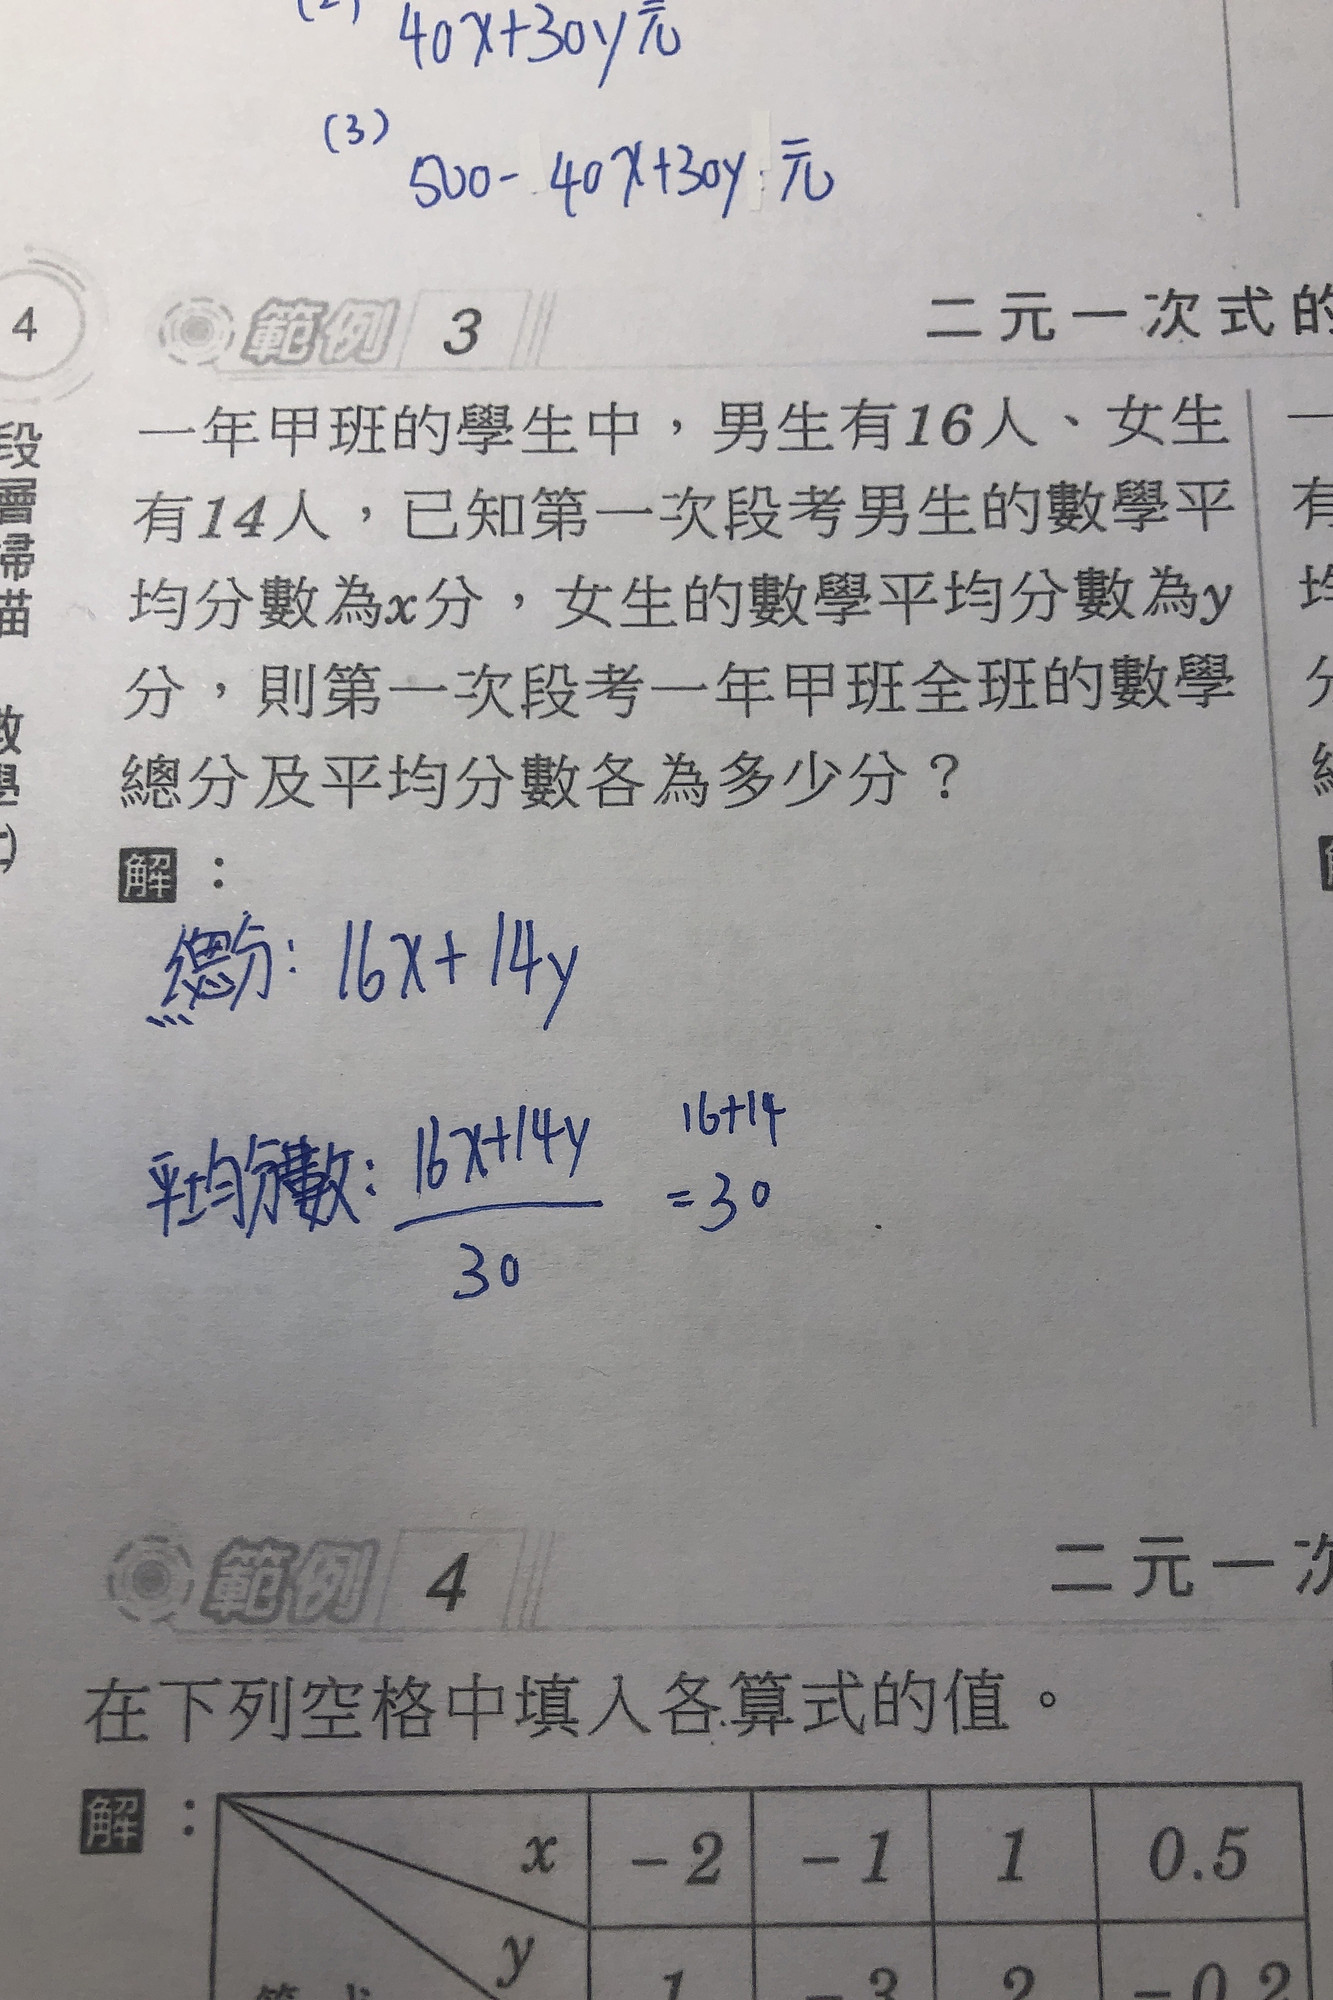 40x+30y元
(3)
500- 40x+30y 元
4
範例 3
二元一次式的
一年甲班的學生中，男生有16人、女生
有14人，已知第一次段考男生的數學平
均分數為x分，女生的數學平均分數為y
分，則第一次段考一年甲班全班的數學
總分及平均分數各為多少分？
解：
總分：16x+14y
平均分數：16x+14y
30
16+14
=30
段層掃描 數學
範例 4
二元一次
在下列空格中填入各算式的值。
解：
x -2 -1 1 0.5
y 1 -3 2 -0.2